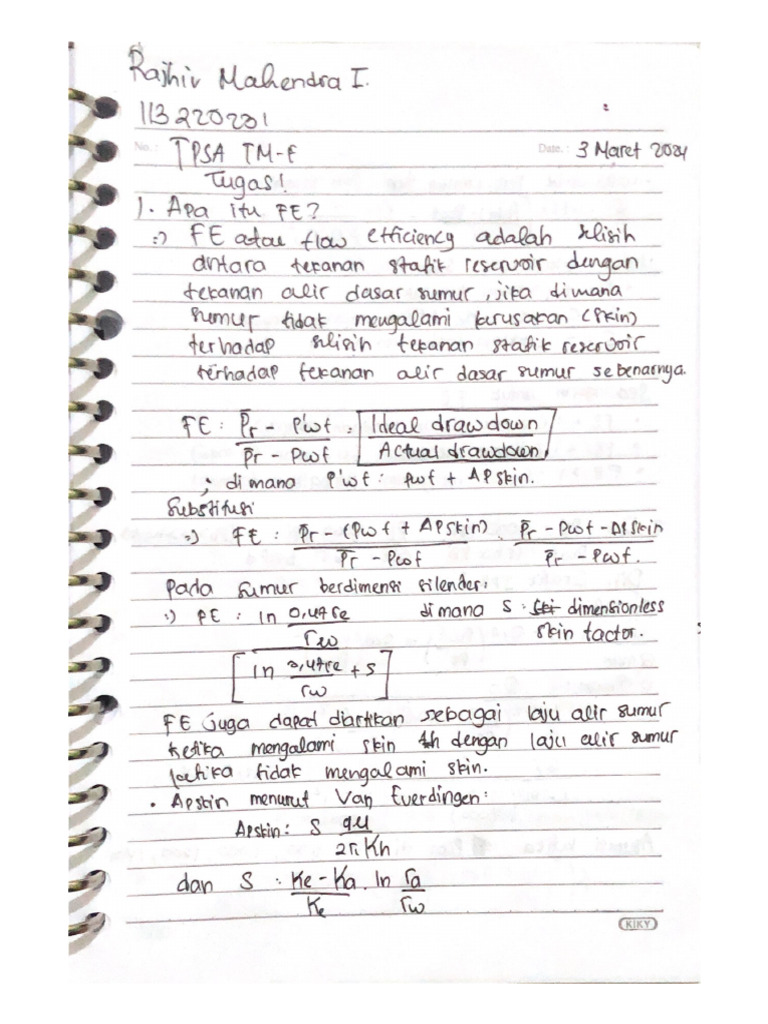 Rajhiv Mahendra I.
113220201
No.: TPSA TM-F Date.: 3 Maret 2024
Tugas!
1. Apa itu FE?
=) FE atau flow efficiency adalah selisih
antara tekanan statik reservoir dengan
tekanan alir dasar sumur, jika dimana
sumur tidak mengalami kerusakan (skin)
terhadap selisih tekanan statik reservoir
terhadap tekanan alir dasar sumur sebenarnya.
FE : P̄r - P'wf = Ideal drawdown
P̄r - Pwf Actual drawdown.
; dimana P'wf : Pwf + ΔPskin.
Substitusi
=) FE : P̄r - (Pwf + ΔPskin) . P̄r - Pwf - ΔPskin
P̄r - Pwf P̄r - Pwf.
Pada sumur berdimensi silender:
=) FE : ln 0,47re dimana S : dimensionless
rw skin factor.
[ln 0,47re + S]
rw
FE juga dapat diartikan sebagai laju alir sumur
ketika mengalami skin dengan laju alir sumur
ketika tidak mengalami skin.
• ΔPskin menurut Van Everdingen:
ΔPskin : S qμ
2π Kh
dan S : Ke - Ka . ln ra
Ke rw
KIKY